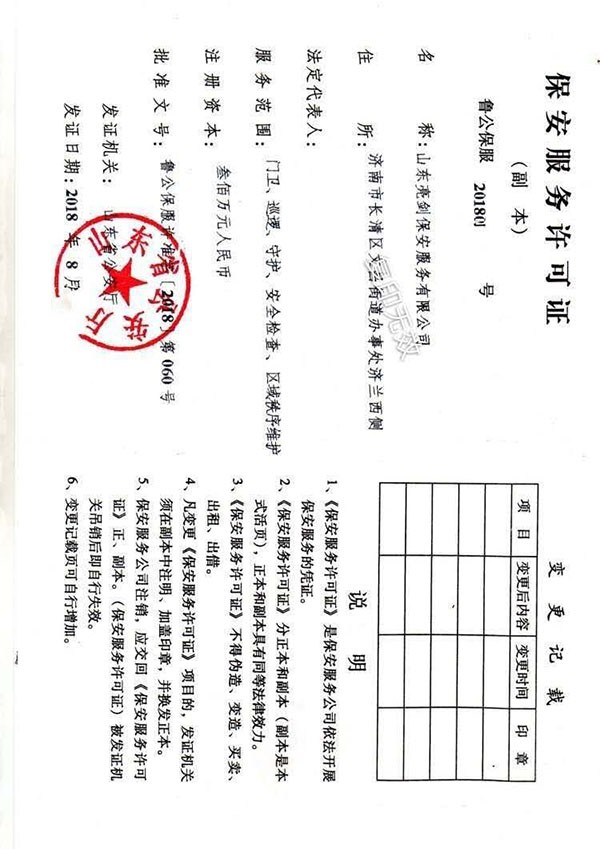 保安服务许可证
（副 本）
鲁公保服 2018 号
名 称：山东亮剑保安服务有限公司
住 所：济南市长清区 街道办事处济兰西侧
法定代表人：
服务范围：门卫、巡逻、守护、安全检查、区域秩序维护
注册资本：叁佰万元人民币
批准文号：鲁公保服许准字[2018]第060号
发证机关：山东省公安厅
发证日期：2018 年 8 月
山东省公安厅
复印无效
变 更 记 载
项 目 变更后内容 变更时间 印 章
说 明
1、《保安服务许可证》是保安服务公司依法开展
保安服务的凭证。
2、《保安服务许可证》分正本和副本（副本是本
式活页），正本和副本具有同等法律效力。
3、《保安服务许可证》不得伪造、变造、买卖、
出租、出借。
4、凡变更《保安服务许可证》项目的，发证机关
须在副本中注明、加盖印章，并换发正本。
5、保安服务公司注销，应交回《保安服务许可
证》正、副本。《保安服务许可证》被发证机
关吊销后即自行失效。
6、变更记载页可自行增加。